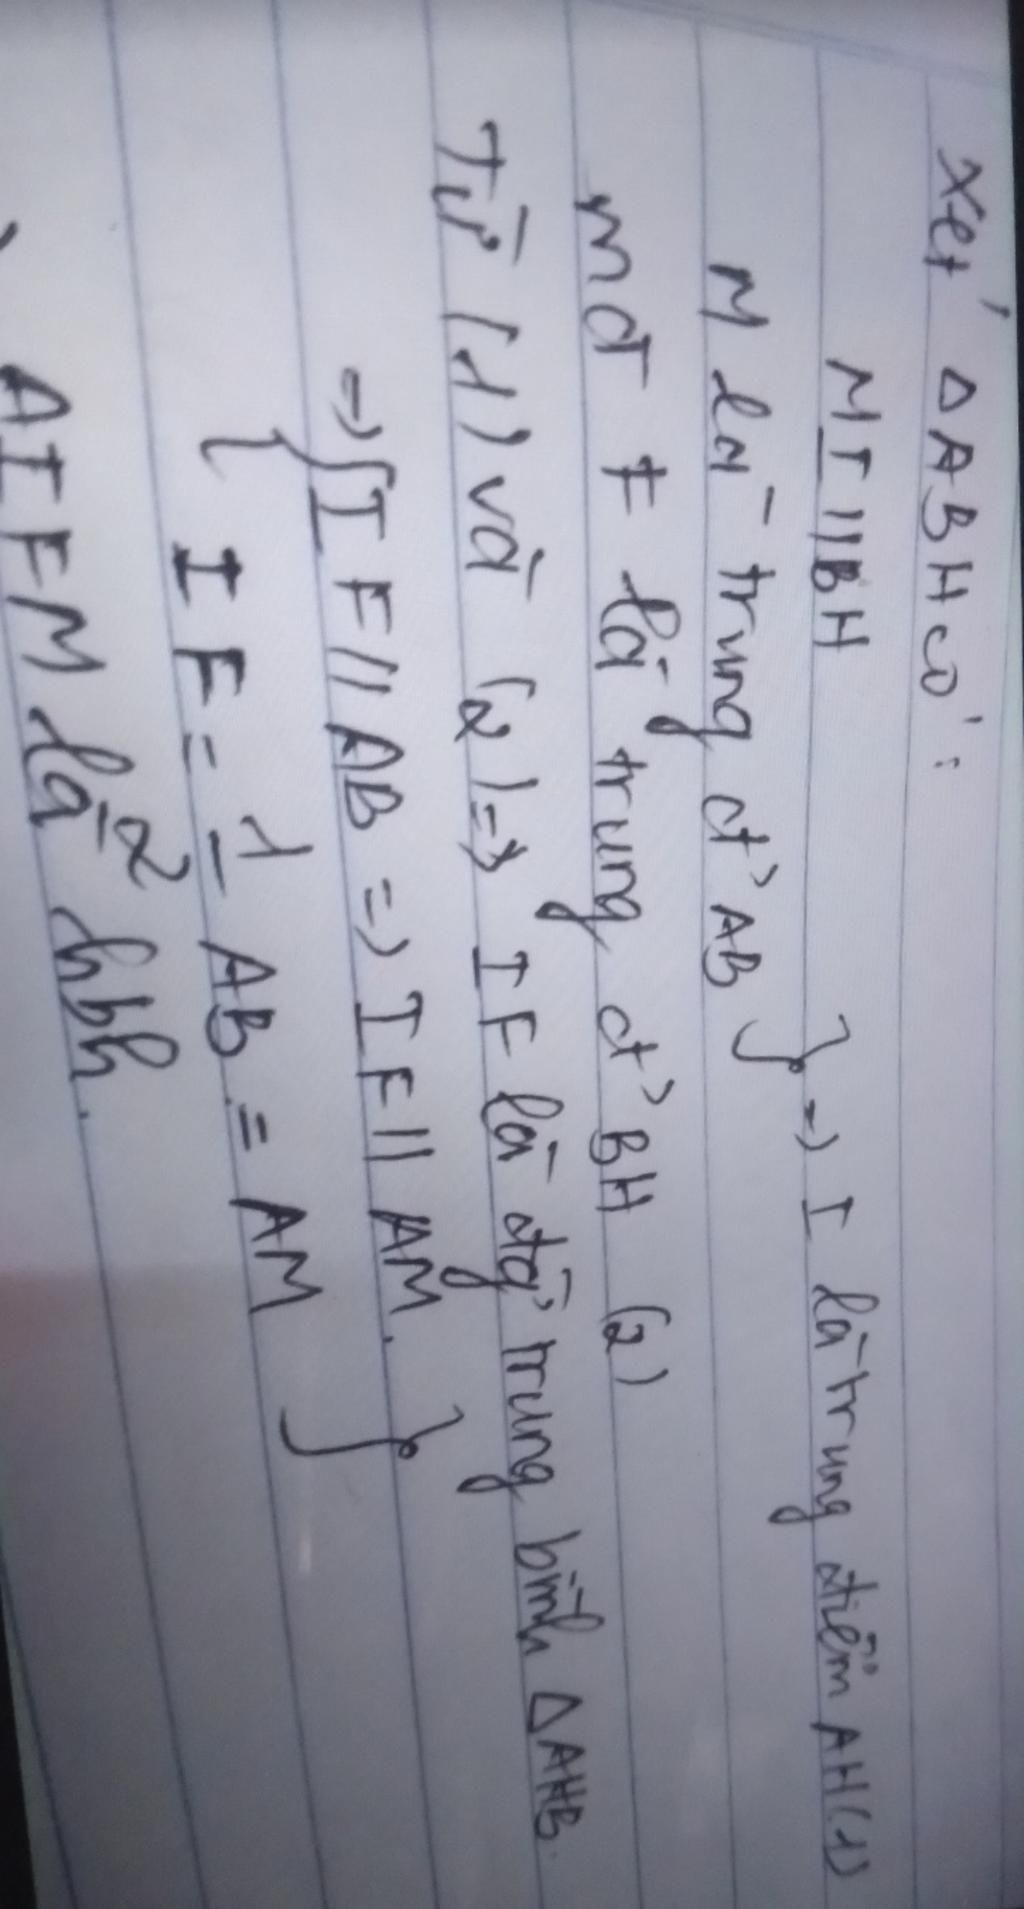 Xét ΔABH có:
MI // BH
M là trung đ' AB } => I là trung điểm AH (1)
mà F là trung đ' BH (2)
Từ (1) và (2) => IF là đg' trung bình ΔAHB.
=> { IF // AB => IF // AM.
IF = 1/2 AB = AM }
AIFM là hbh.